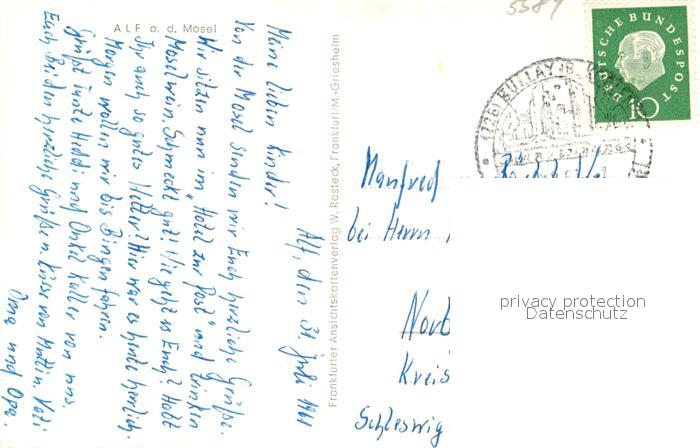 ALF a. d. Mosel
5589
Alf, den 31. Juli 1961
Meine lieben Kinder!
Von der Mosel senden wir Euch herzliche Grüße.
Wir sitzen nun im "Hotel zur Post" und trinken
Moselwein. Schmeckt gut! Wie geht es Euch? Habt
Ihr auch so gutes Wetter? Hier war es heute herrlich
Morgen wollen wir bis Bingen fahren.
Grüßt Tante Heddi und Onkel Walter von uns.
Euch beiden herzliche Grüße u. Küsse von Mutti u. Vati
Oma und Opa.
Frankfurter Ansichtskartenverlag W. Rosteck, Frankfurt/M.-Griesheim
DEUTSCHE BUNDESPOST
10
BULLAY
Manfred
bei Herrn
Kreis
Schleswig
privacy protection
Datenschutz